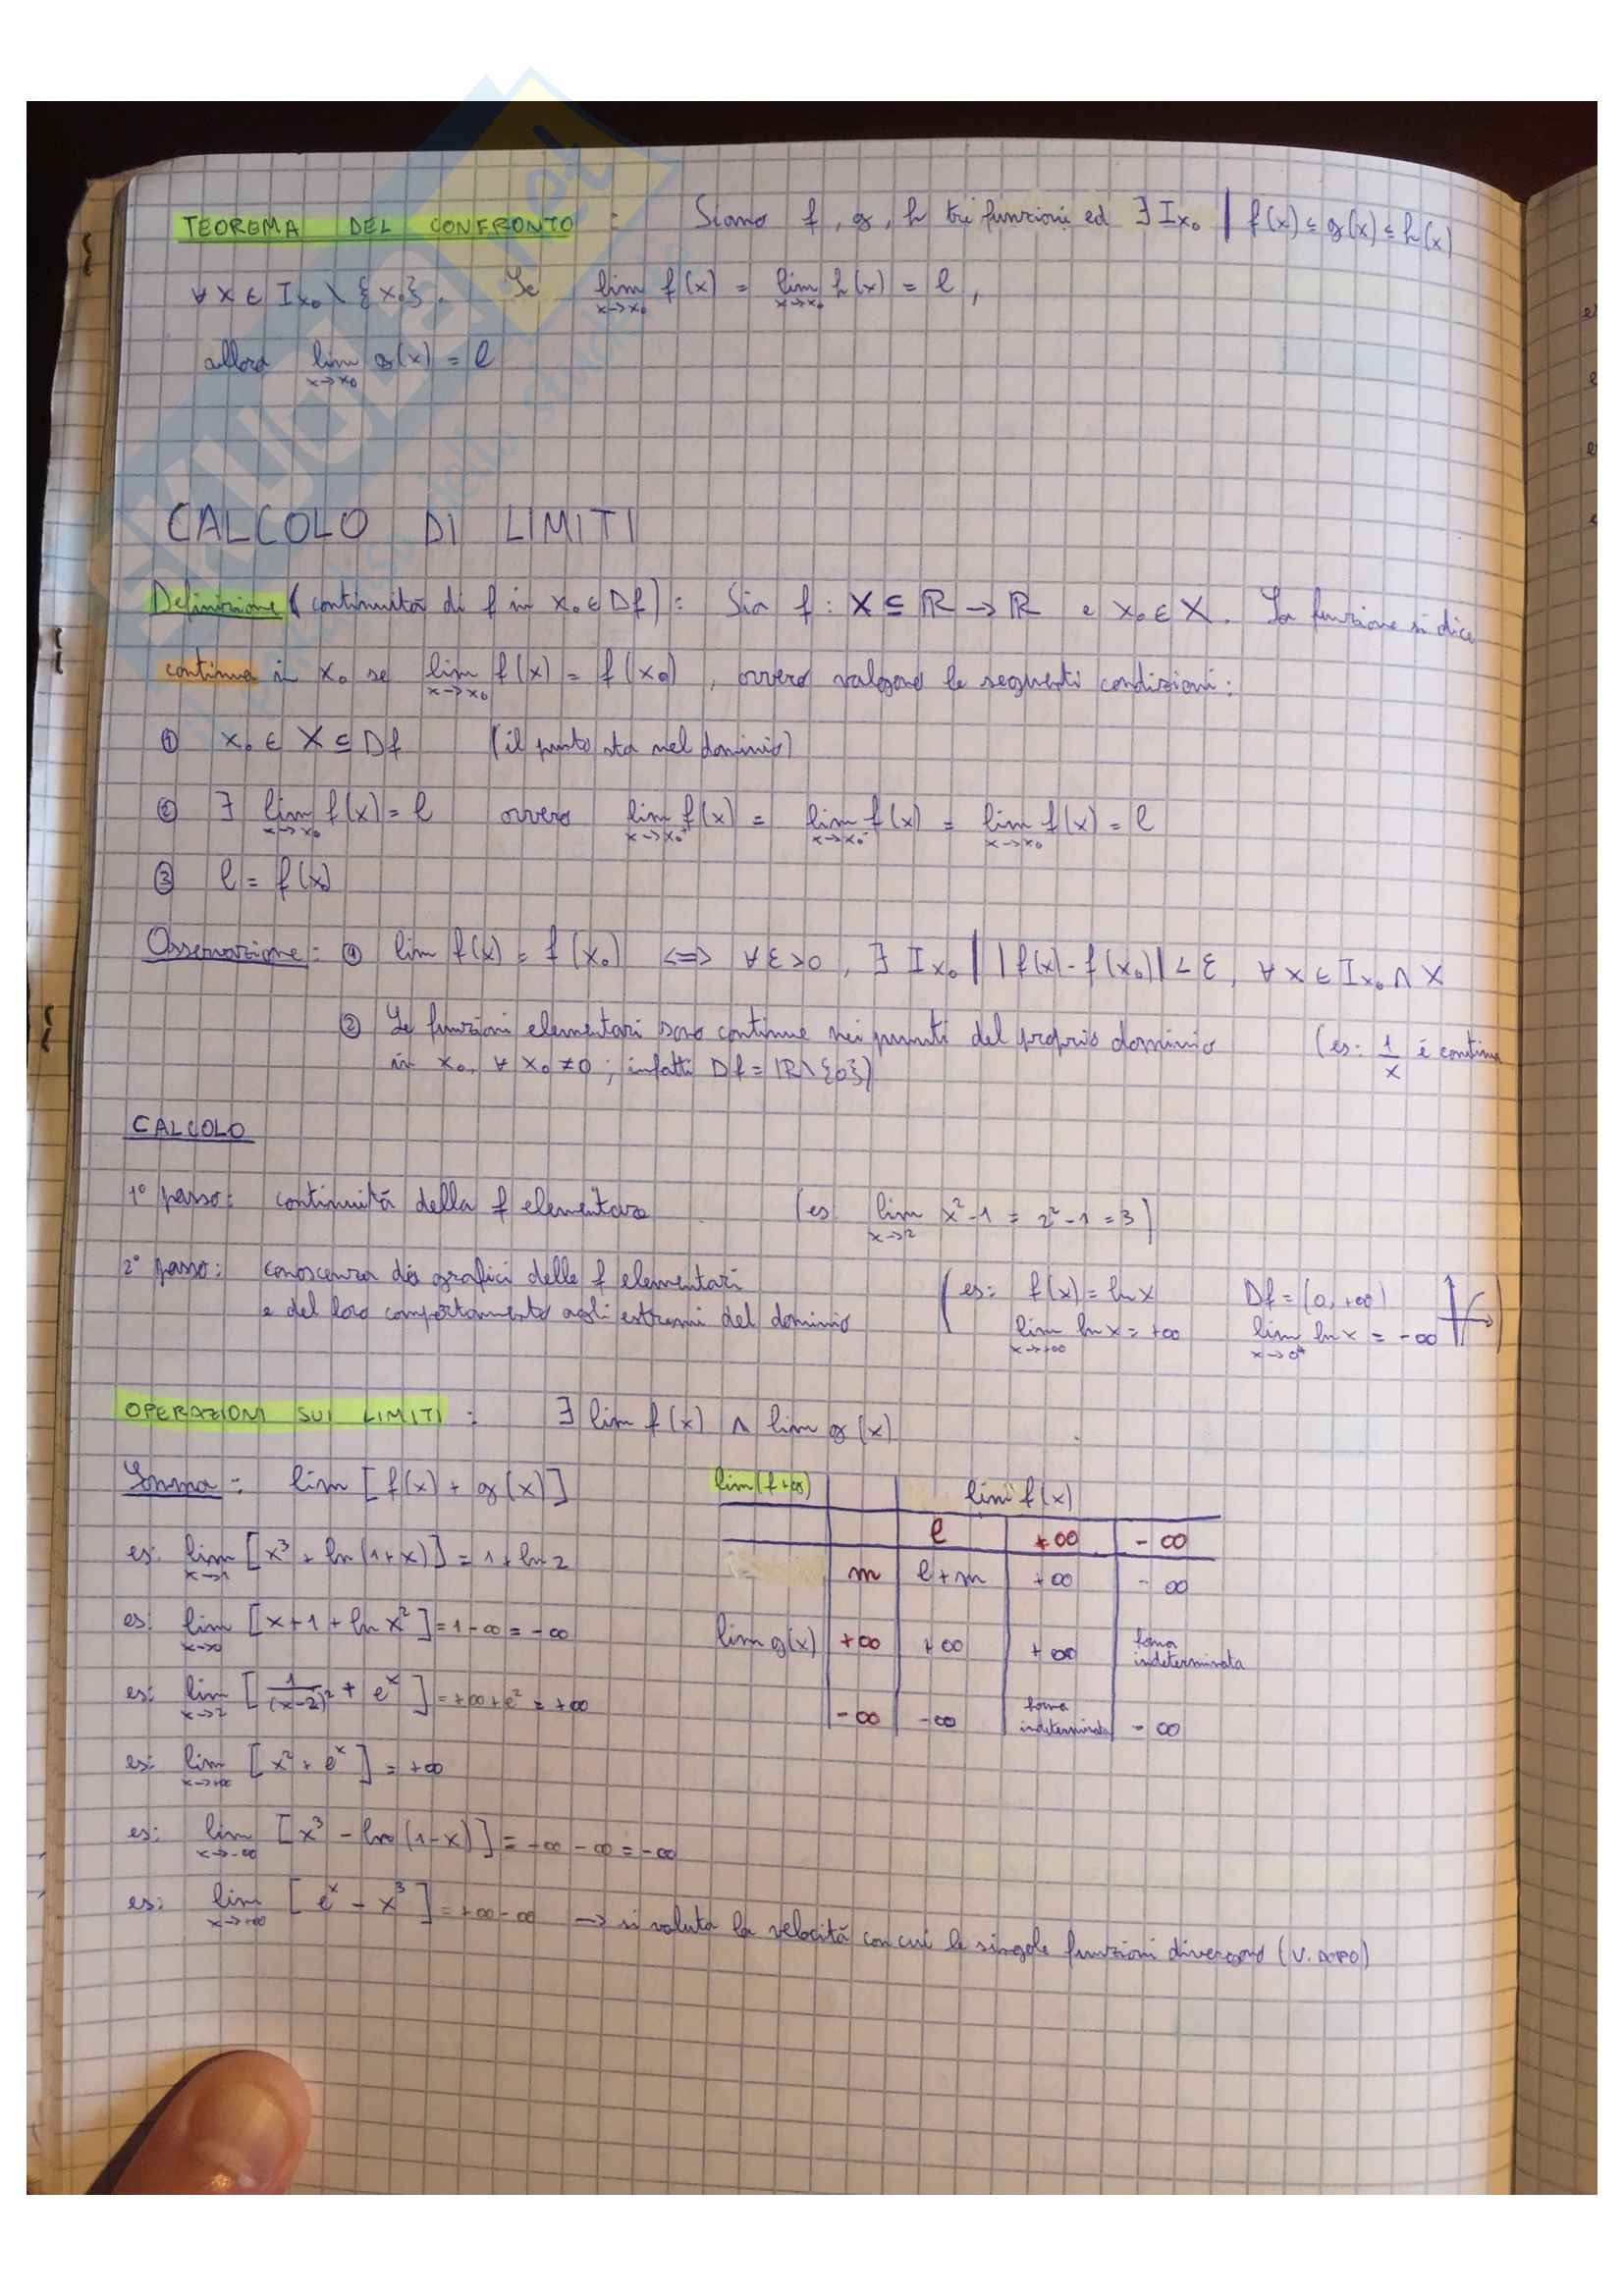 TEOREMA DEL CONFRONTO : Siano f, g, h tre funzioni ed ∃ Ix₀ | f(x) ≤ g(x) ≤ h(x)
∀ x ∈ Ix₀ \ {x₀}. Se lim x→x₀ f(x) = lim x→x₀ h(x) = l ,
allora lim x→x₀ g(x) = l
CALCOLO DI LIMITI
Definizione (continuità di f in x₀ ∈ Df) : Sia f : X ⊆ ℝ → ℝ e x₀ ∈ X. La funzione si dice
continua in x₀ se lim x→x₀ f(x) = f(x₀) , ovvero valgono le seguenti condizioni :
① x₀ ∈ X ⊆ Df (il punto sta nel dominio)
② ∃ lim x→x₀ f(x) = l ovvero lim x→x₀⁺ f(x) = lim x→x₀⁻ f(x) = lim x→x₀ f(x) = l
③ l = f(x₀)
Osservazione : ① lim f(x) = f(x₀) <=> ∀ ε > 0 , ∃ Ix₀ | |f(x) - f(x₀)| < ε , ∀ x ∈ Ix₀ ∩ X
② Le funzioni elementari sono continue nei punti del proprio dominio (es: 1/x è continua
in x₀, ∀ x₀ ≠ 0 ; infatti Df = ℝ \ {0})
CALCOLO
1° passo : continuità della f elementare (es lim x→2 x² - 1 = 2² - 1 = 3)
2° passo : conoscenza dei grafici delle f elementari (es: f(x) = ln x Df = (0, +∞)
e del loro comportamento agli estremi del dominio lim x→+∞ ln x = +∞ lim x→0⁺ ln x = -∞ )
OPERAZIONI SUI LIMITI : ∃ lim f(x) ∧ lim g(x)
Somma : lim [f(x) + g(x)]
lim(f+g) lim f(x)
l +∞ -∞
m l+m +∞ -∞
lim g(x) +∞ +∞ +∞ forma indeterminata
-∞ -∞ forma indeterminata -∞
es: lim x→1 [x³ + ln(1+x)] = 1 + ln 2
es: lim x→0 [x + 1 + ln x²] = 1 - ∞ = -∞
es: lim x→2 [1/(x-2)² + eˣ] = +∞ + e² = +∞
es: lim x→+∞ [x² + eˣ] = +∞
es: lim x→-∞ [x³ - ln(1-x)] = -∞ - ∞ = -∞
es: lim x→+∞ [eˣ - x³] = +∞ - ∞ → si valuta la velocità con cui le singole funzioni divergono (V. DOPO)